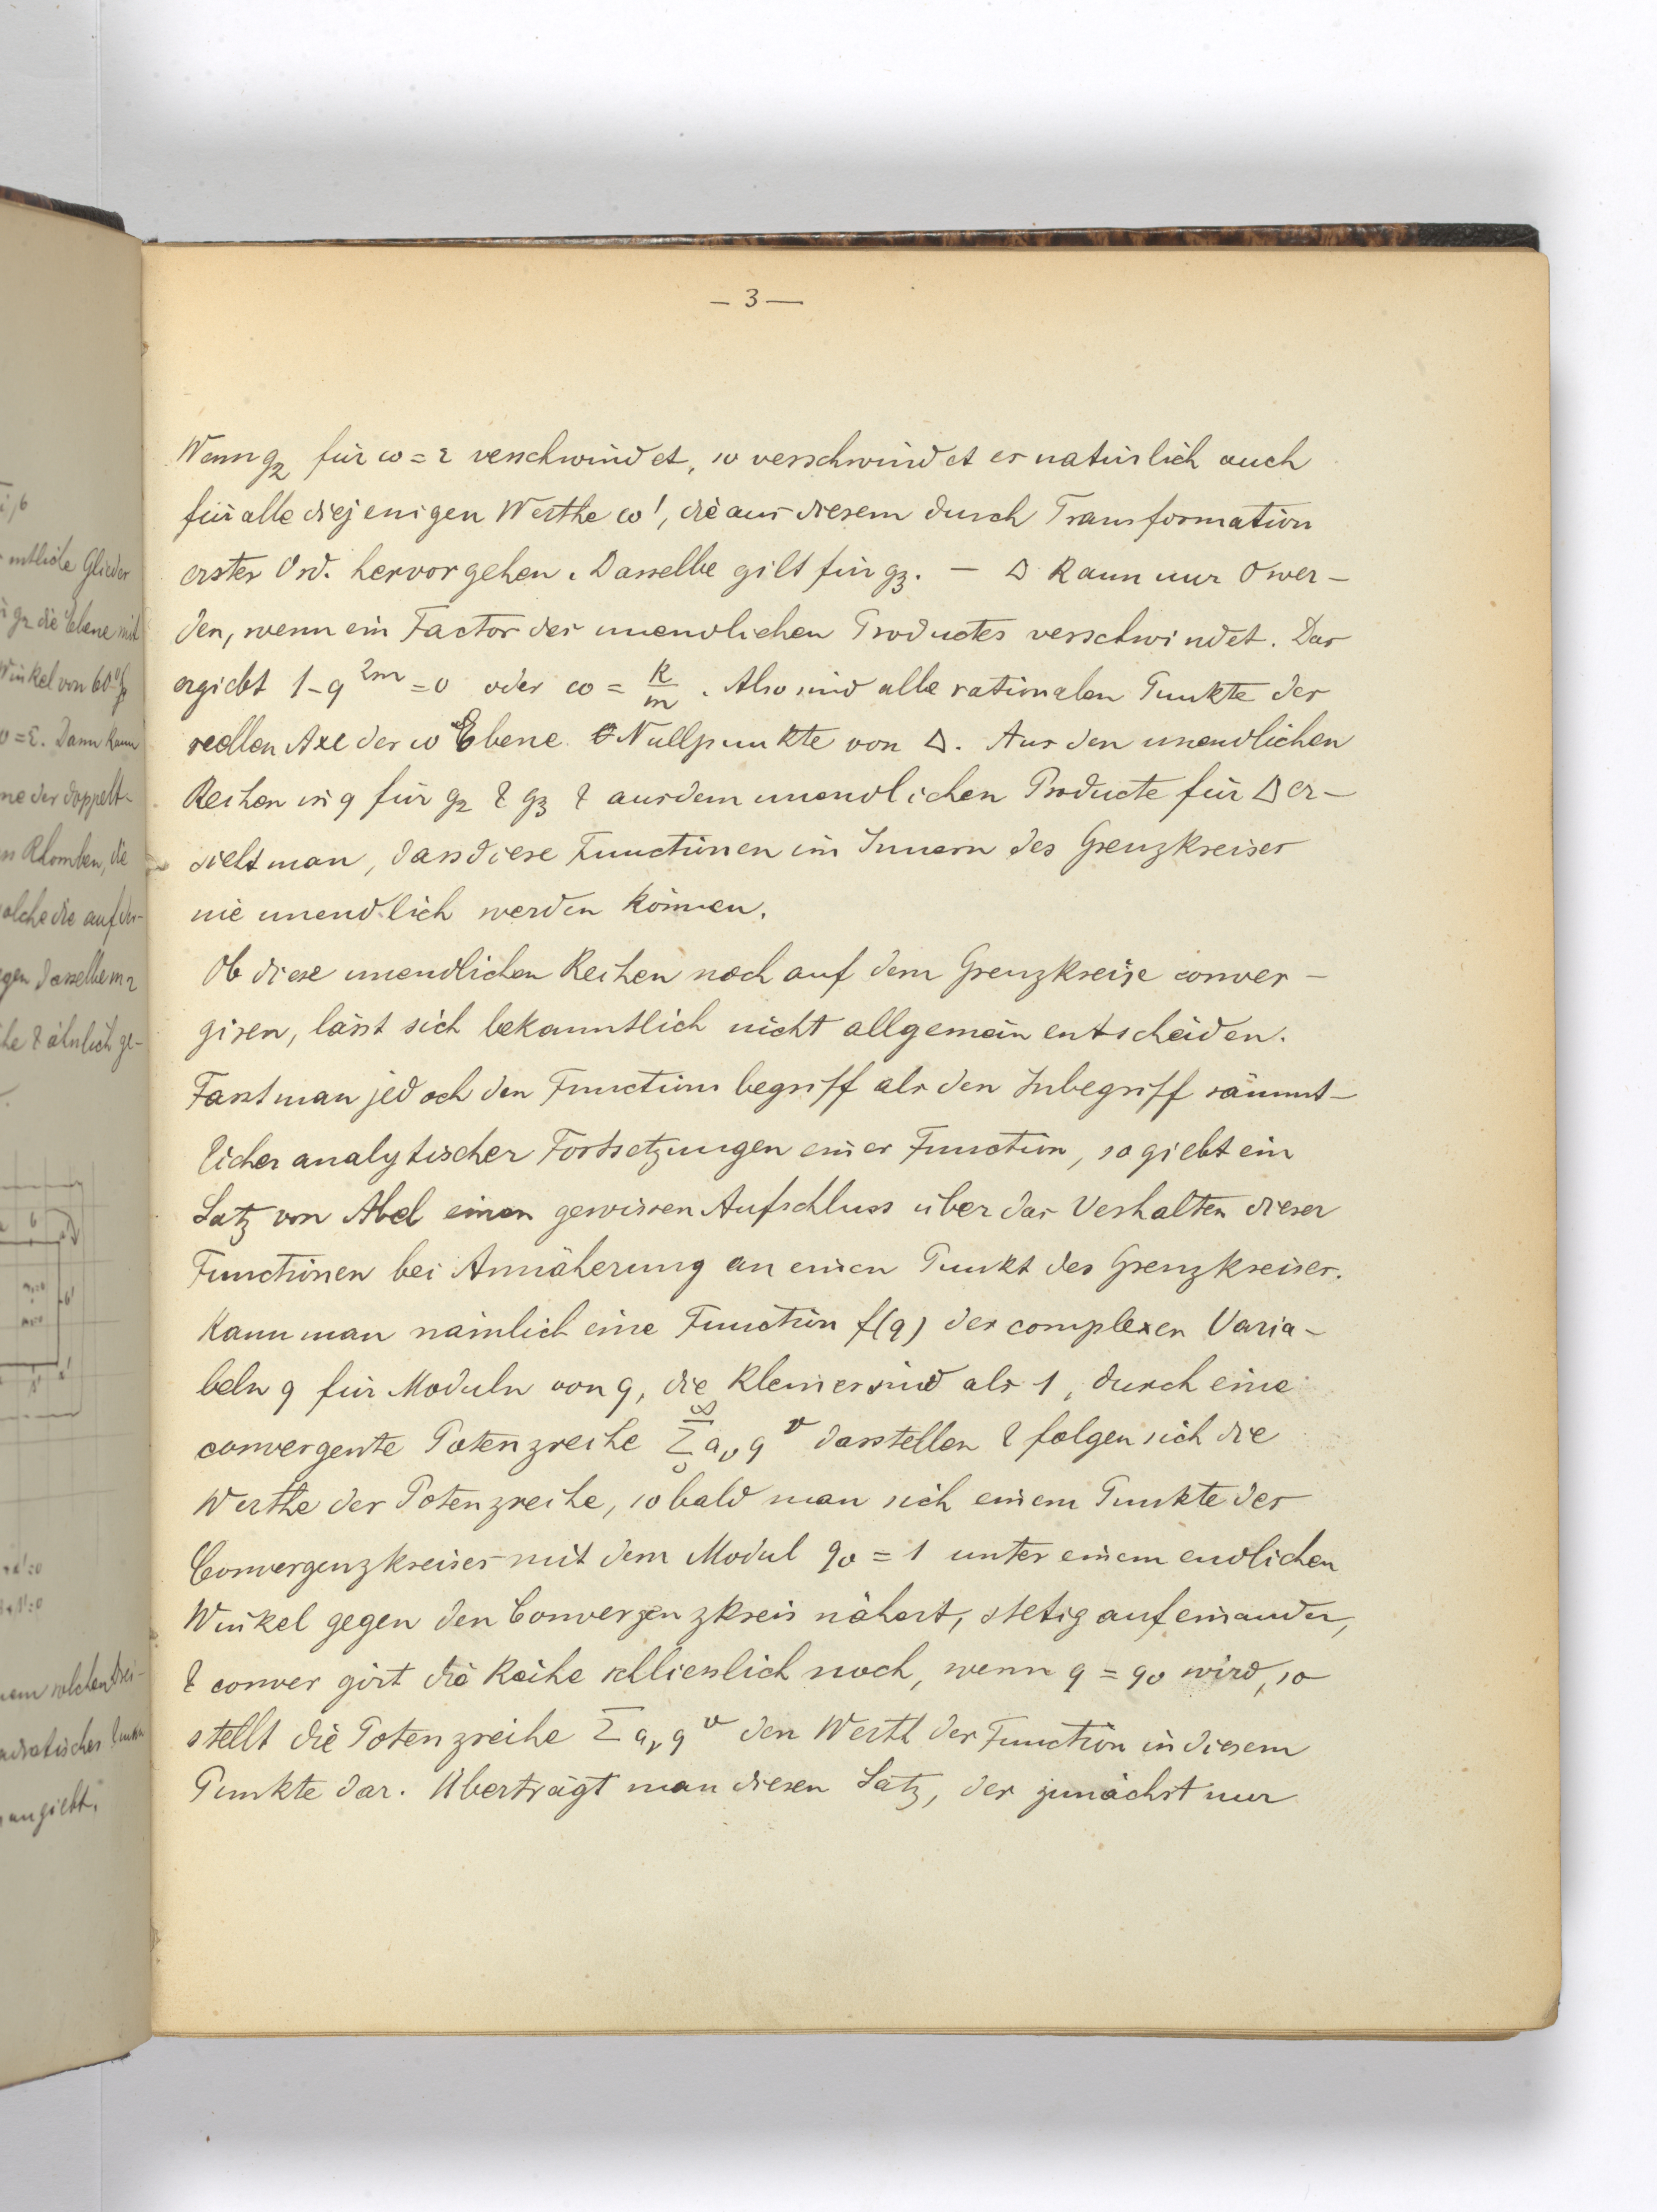 – 3 —
Wenn g₂ für ω = ε verschwindet, so verschwindet es natürlich auch
für alle diejenigen Werthe ω', die aus diesem durch Transformation
erster Ord. hervorgehen. Dasselbe gilt für g₃. — Δ kann nur 0 wer-
den, wenn ein Factor des unendlichen Productes verschwindet. Das
ergiebt 1-q^{2m} = 0 oder ω = k/m. Also sind alle rationalen Punkte der
reellen Axe der ω Ebene Nullpunkte von Δ. Aus den unendlichen
Reihen in q für g₂ & g₃ & aus dem unendlichen Producte für Δ er-
sieht man, dass diese Functionen im Innern des Grenzkreises
nie unendlich werden können.
Ob diese unendlichen Reihen noch auf dem Grenzkreise conver-
giren, lässt sich bekanntlich nicht allgemein entscheiden.
Fasst man jedoch den Functionsbegriff als den Inbegriff sämmt-
licher analytischer Fortsetzungen einer Function, so giebt ein
Satz von Abel einen gewissen Aufschluss über das Verhalten dieser
Functionen bei Annäherung an einen Punkt des Grenzkreises.
Kann man nämlich eine Function f(q) der complexen Varia-
beln q für Moduln von q, die kleiner sind als 1, durch eine
convergente Potenzreihe Σ_0^∞ a_ν q^ν darstellen & folgen sich die
Werthe der Potenzreihe, sobald man sich einem Punkte des
Convergenzkreises mit dem Modul q₀ = 1 unter einem endlichen
Winkel gegen den Convergenzkreis nähert, stetig aufeinander,
& convergirt die Reihe schliesslich noch, wenn q = q₀ wird, so
stellt die Potenzreihe Σ a_ν q^ν den Werth der Function in diesem
Punkte dar. Überträgt man diesen Satz, der zunächst nur